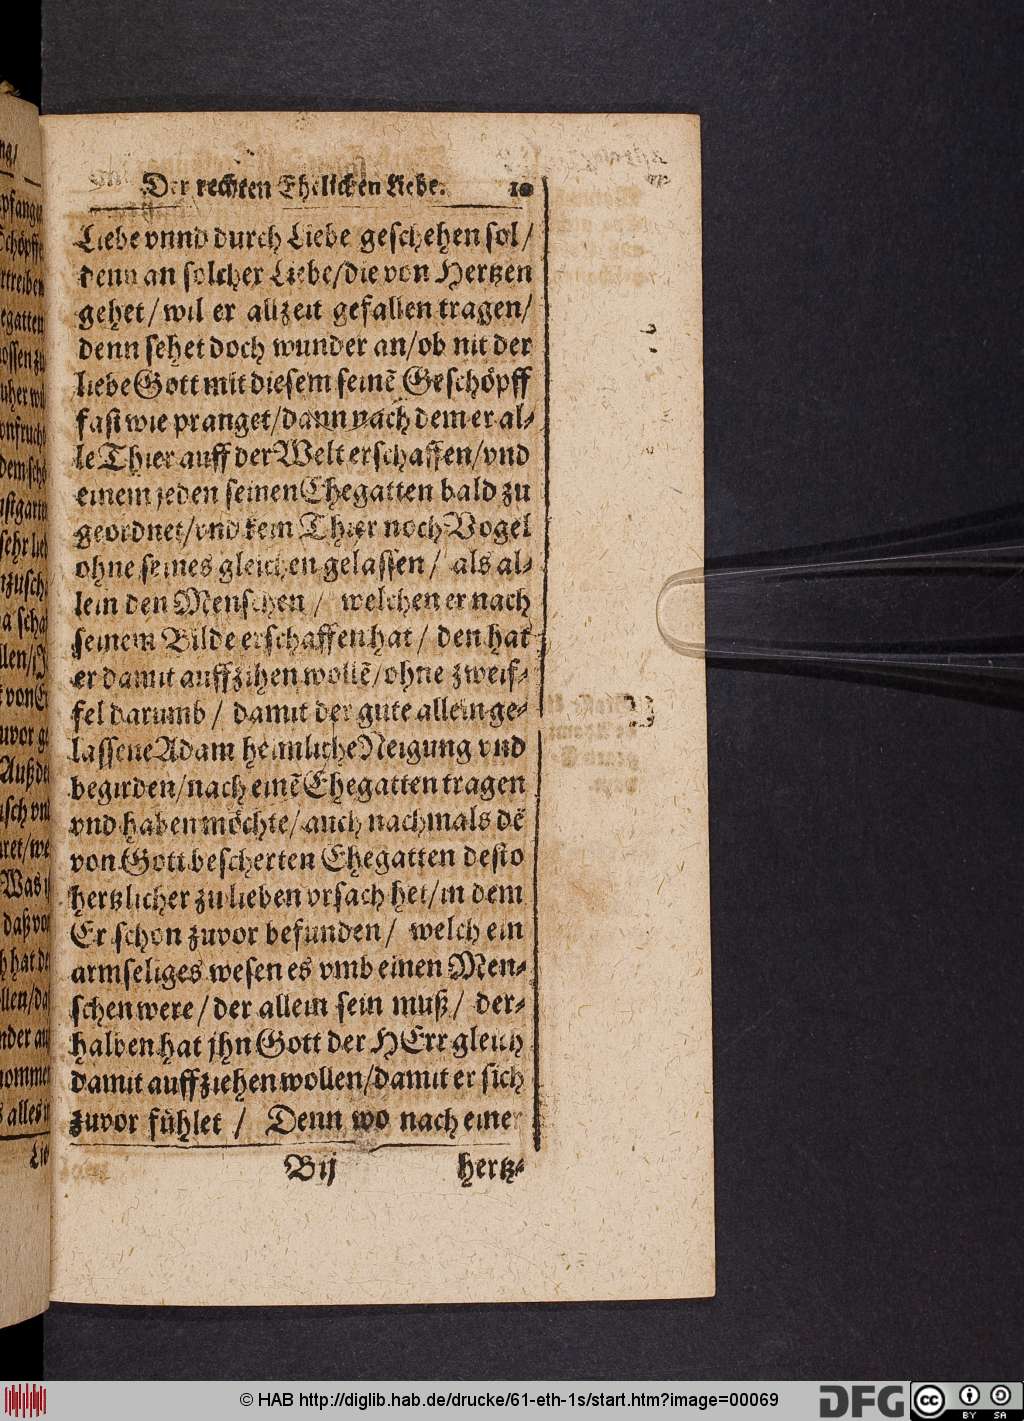 Der rechten Ehelichen Liebe. 10
Liebe vnnd durch Liebe geschehen sol/
denn an solcher Liebe/die von Hertzen
gehet/wil er allzeit gefallen tragen/
denn sehet doch wunder an/ob nit der
liebe Gott mit diesem seinē Geschöpff
fast wie pranget/dann nach dem er al-
le Thier auff der Welt erschaffen/vnd
einem jeden seinen Ehegatten bald zu
geordnet/vnd kein Thier noch Vogel
ohne seines gleichen gelassen/ als al-
lein den Menschen/ welchen er nach
seinem Bilde erschaffen hat/ den hat
er damit auffzihen wollē/ohne zweif-
fel darumb/ damit der gute allein ge-
lassene Adam heimliche Neigung vnd
begirden/nach einē Ehegatten tragen
vnd haben möchte/auch nachmals dē
von Gott bescherten Ehegatten desto
hertzlicher zu lieben vrsach het/in dem
Er schon zuvor befunden/ welch ein
armseliges wesen es vmb einen Men-
schen were/der allein sein muß/ der-
halben hat jhn Gott der HErr gleich
damit auffziehen wollen/damit er sich
zuvor fühlet/ Denn wo nach einer
Bij hertz-
© HAB http://diglib.hab.de/drucke/61-eth-1s/start.htm?image=00069
DFG
cc
BY SA